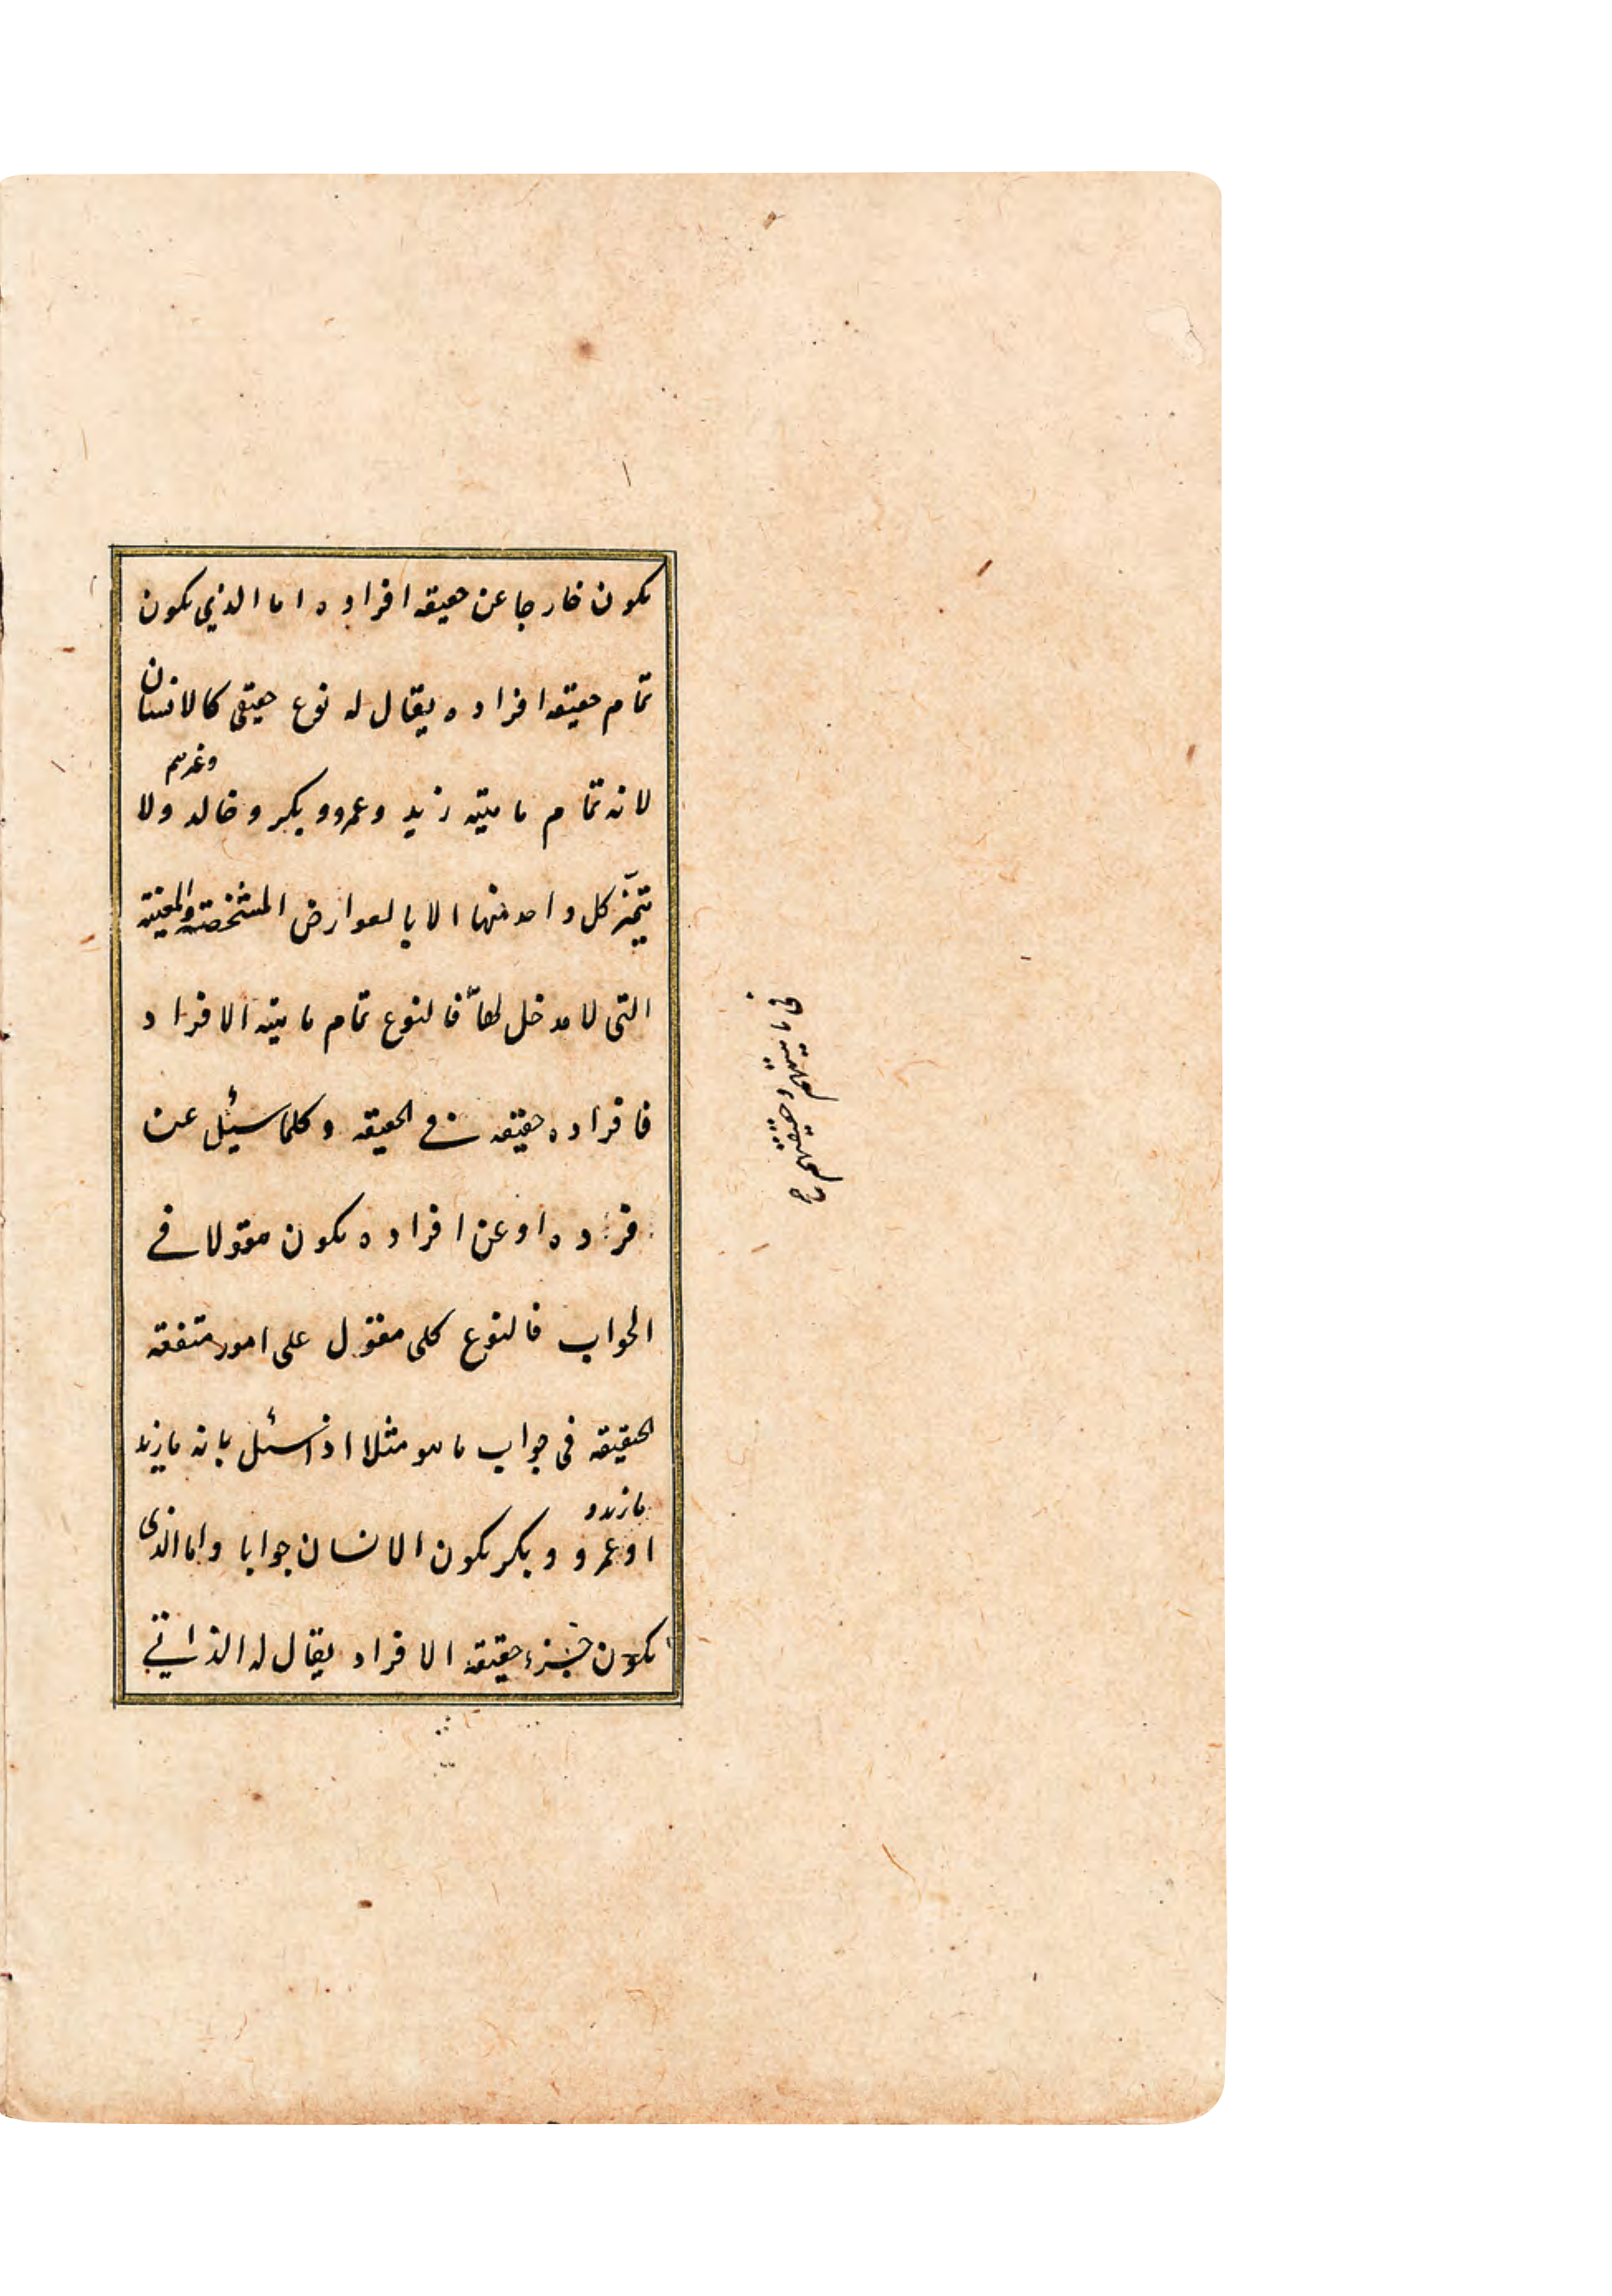 يكون خارجا عن حقيقه افراده اما الذي يكون
تمام حقيقه افراده يقال له نوع حقيقي كالانسان
لانه تمام ماهيته زيد وعمرو وبكر وخالد وغيرهم ولا
يتميّز كل واحد منها الا بالعوارض المشخصة والمعينة
التى لا مدخل لها فالنوع تمام ماهيته الافراد
فى ماهيتهم وحقيقتهم صح
فافراده حقيقه فى الحقيقه وكلما سئيل عن
فرده او عن افراده يكون مقولا فے
الجواب فالنوع كلى مقول على امور متفقه
الحقيقه فى جواب ما هو مثلا اذا سئل بانه ما زيد
او ما زيد و عمرو وبكر يكون الانسان جوابا واما الذى
يكون جزء حقيقه الافراد يقال له الذاتي